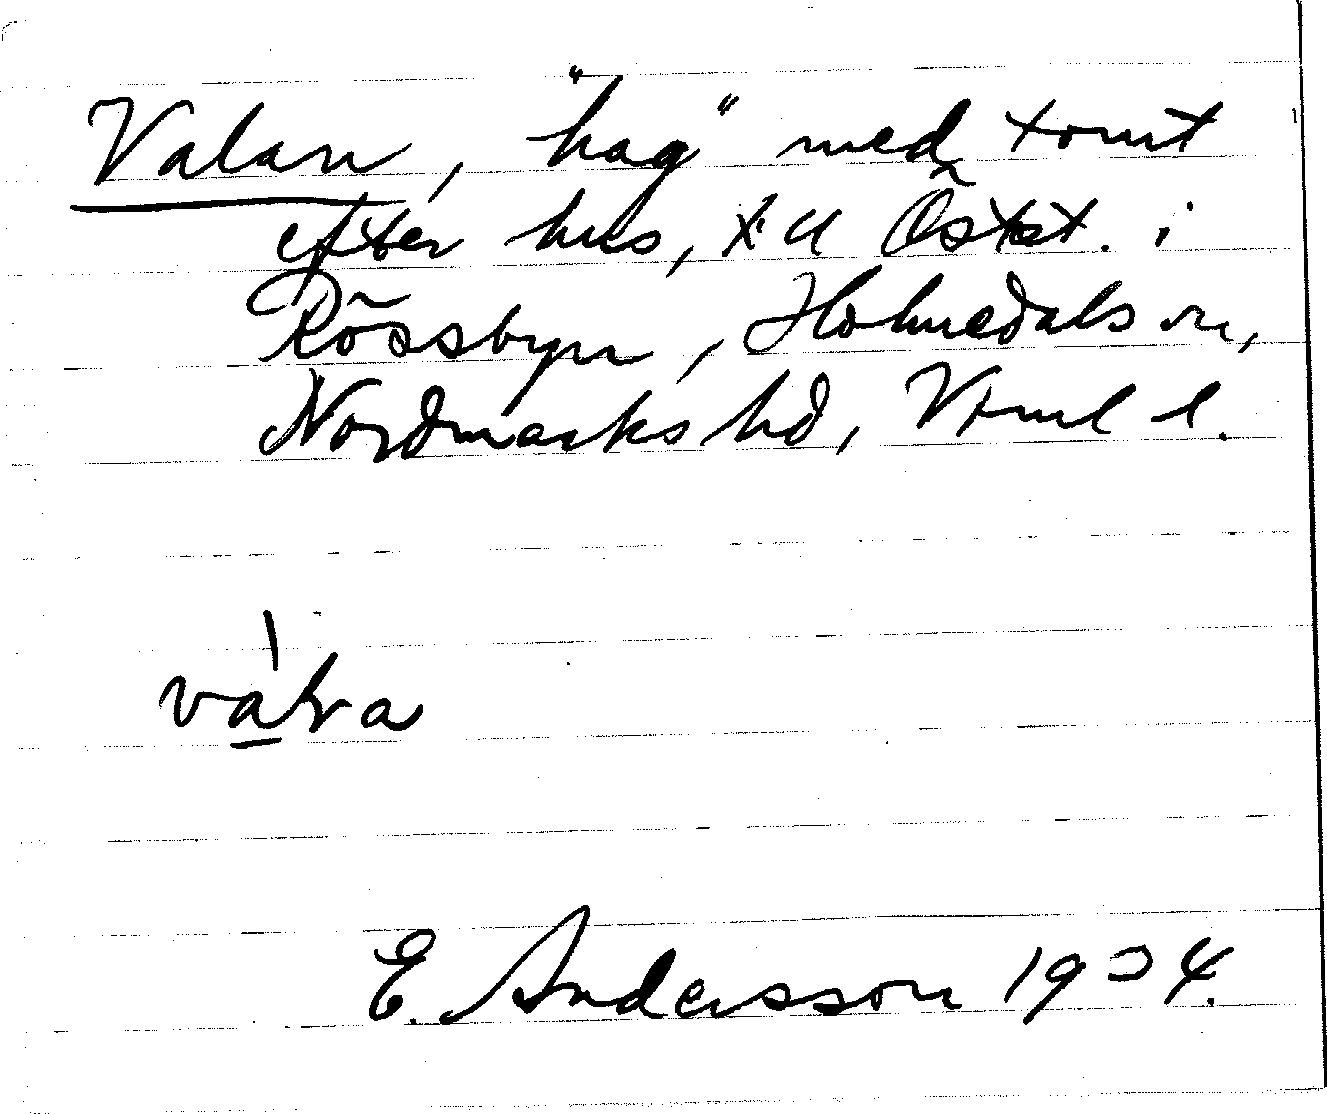 Valan, "hag" med tomt
efter hus, t. u Östst. i
Rössbyn, Holmedals sn,
Nordmarks hd, Vrml l.
vàlra
E. Andersson 1934.